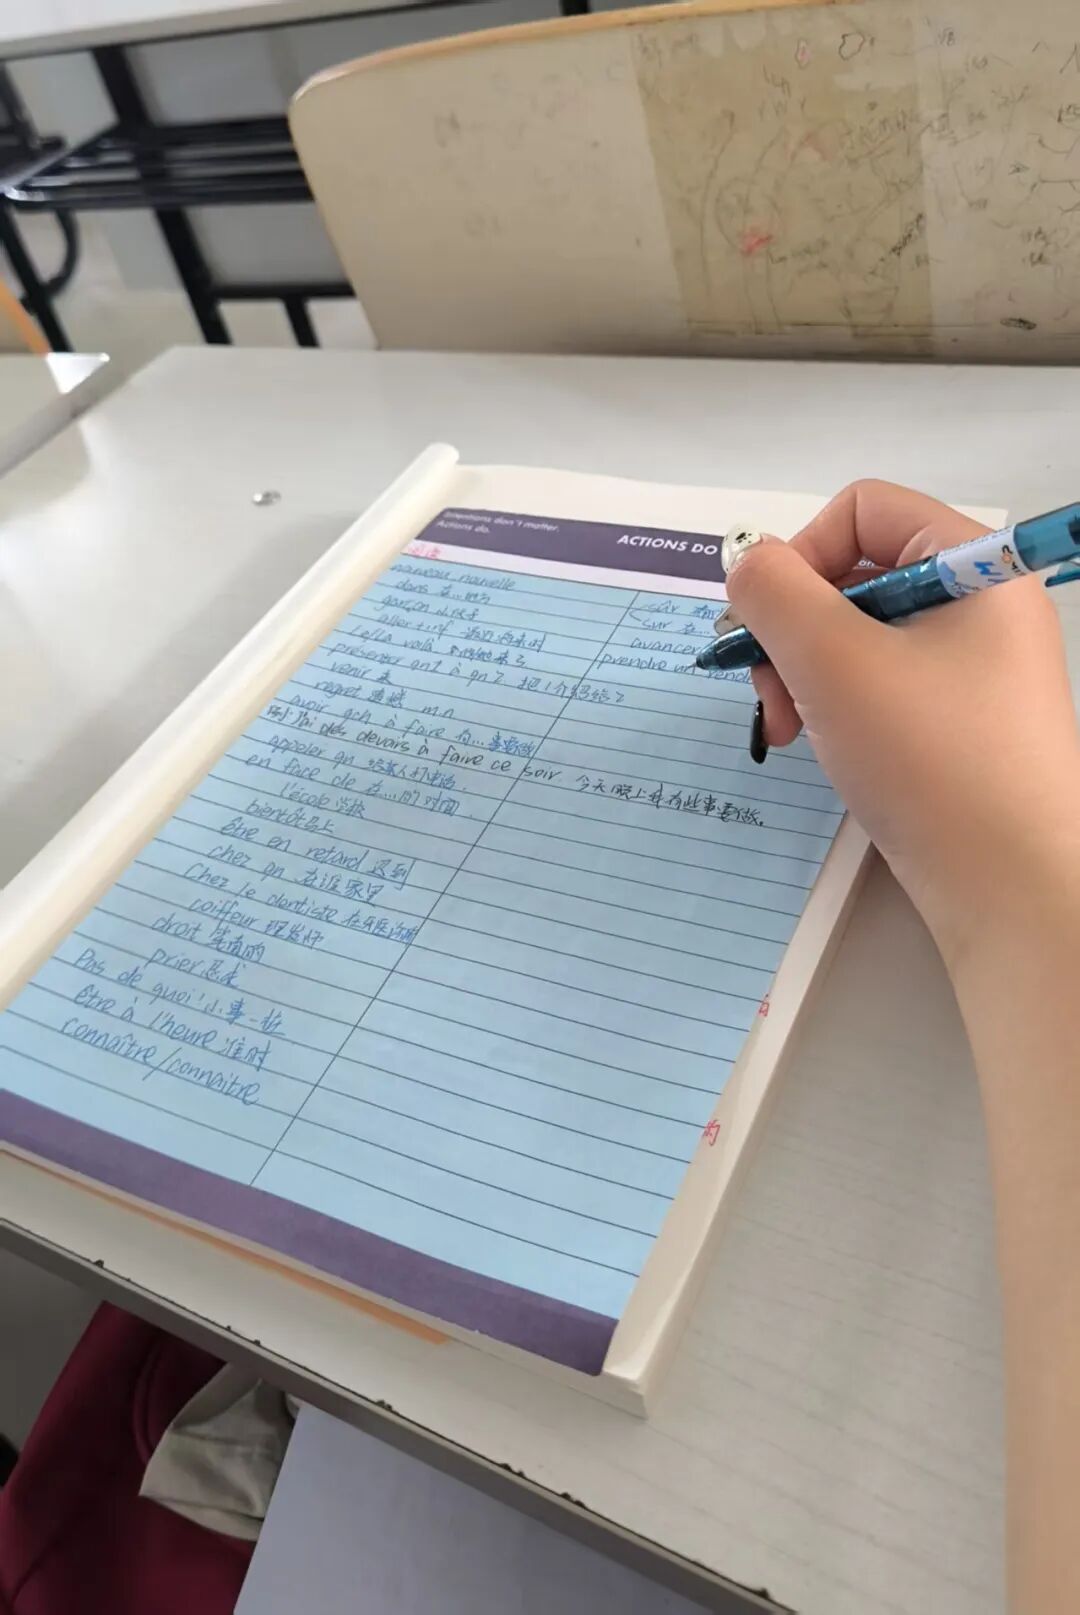 Intentions don't matter.
Actions do.
ACTIONS DO
nouveau nouvelle
dans 在...
garçon 小孩子
aller + inf
Le/La voilà 来了
présenter qn1 à qn2 把1介绍给2
venir 来
regret 遗憾 m.n
avoir qch à faire 有...事要做
j'ai des devoirs à faire ce soir. 今天晚上我有些事要做。
appeler qn 给某人打电话.
en face de 在...的对面.
l'école 学校
bientôt 马上
être en retard 迟到
chez qn 在谁家里
Chez le dentiste 在牙医
coiffeur 理发师
droit 笔直的
prier 恳求
Pas de quoi! 小事一桩
être à l'heure 准时
connaître/connaitre
sûr
sur 在...
avancer
prendre un rend
的